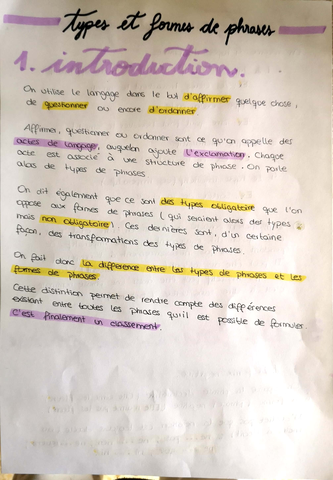 types et formes de phrases
1. introduction.
On utilise le langage dans le but d'affirmer quelque chose,
de questionner ou encore d'ordonner
Affirmer, questionner ou ordonner sont ce qu'on appelle des
actes de langage, auxquelon ajoute l'exclamation. Chaque
acte est associé à une structure de phrase. On parle
alors de types de phrases
On dit également que ce sont des types obligatoire que l'on
oppose aux formes de phrases (qui seraient alors des types
mais non obligatoire). Ces dernières sont, d'un certaine
façon, des transformations des types de phrases.
On fait donc la différence entre les types de phrases et les
formes de phrases.
Cette distintion permet de rendre compte des différences
existant entre toutes les phrases qu'il est possible de formuler.
C'est finalement un classement.